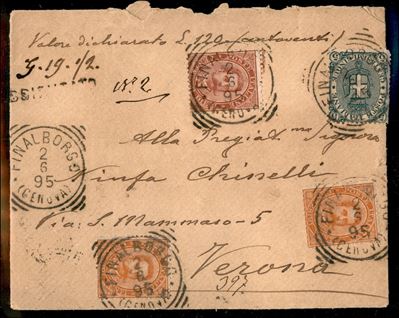 Valore dichiarato L. 120 (centoventi)
G. 19. 1/2
ASSICURATO
N° 2
FINALBORGO
2
6
95
(GENOVA)
Alla Pregiat ma Signora
Ninfa Chinelli
Via: S. Mammaso - 5
Verona
397
FINALBORGO
2
6
95
(GENOVA)
FINALBORGO
2
6
95
(GENOVA)
2
6
95
(GENOVA)